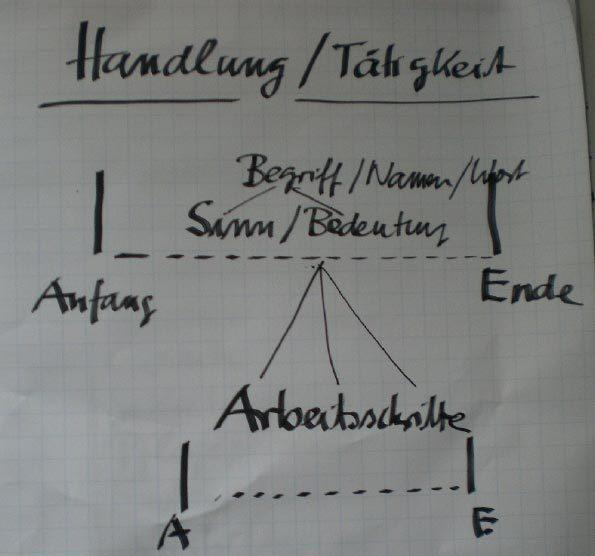 Handlung / Tätigkeit
Begriff / Namen / Wort
Sinn / Bedeutung
Anfang
Ende
Arbeitsschritte
A
E